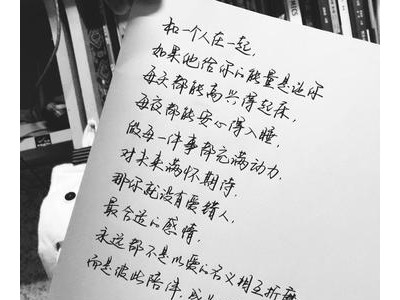 和一个人在一起,
如果他给你的能量是让你
每天都能高兴得起床,
每夜都能安心得入睡,
做每一件事都充满动力,
对未来满怀期待,
那你就没有爱错人,
最合适的感情,
永远都不是以爱的名义相互折磨
而是彼此陪伴,